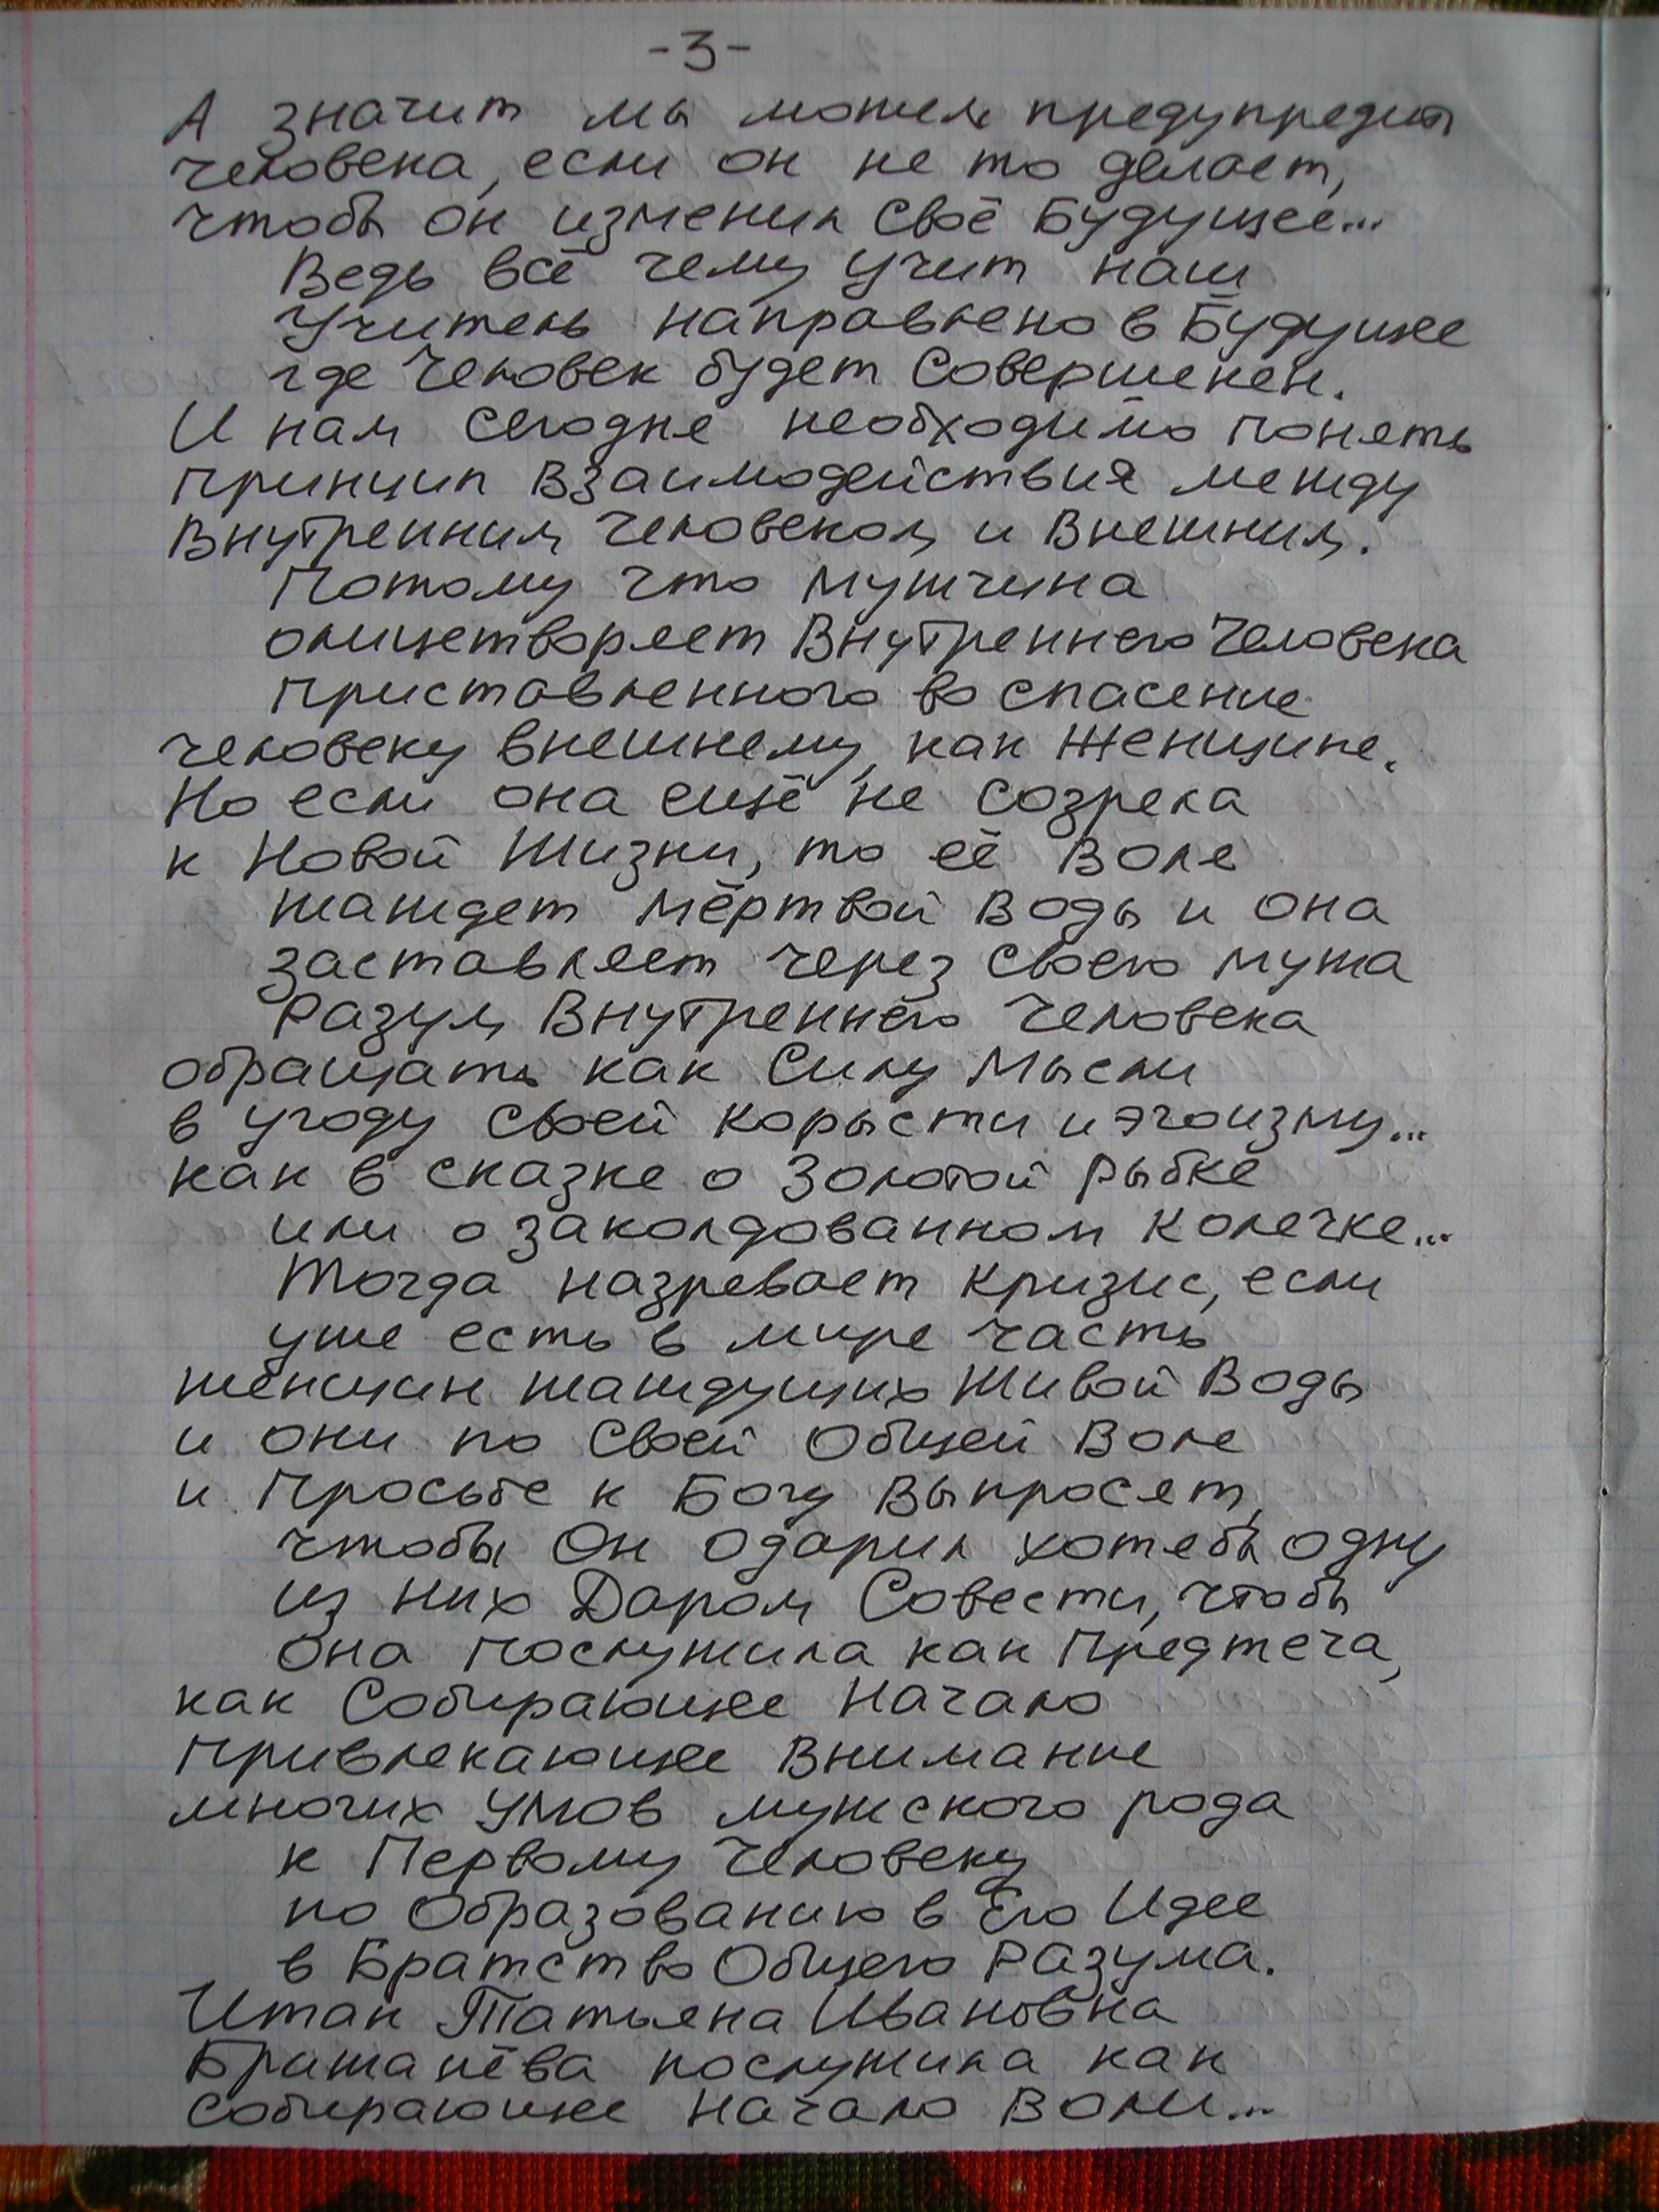 -3-
А значит мы можем предупредить
человека, если он не то делает,
чтобы он изменил своё Будущее...
Ведь всё чему учит наш
Учитель направлено в Будущее
где Человек будет Совершенен.
И нам сегодня необходимо понять
принцип взаимодействия между
Внутренним Человеком и Внешним.
Потому что мужчина
олицетворяет Внутреннего Человека
приставленного во спасение
человеку внешнему, как Женщине.
Но если она ещё не созрела
к Новой Жизни, то её Воля
жаждет мёртвой воды и она
заставляет через своего мужа
Разум Внутреннего Человека
обращать как Силу Мысли
в угоду своей корысти и эгоизму...
как в сказке о Золотой Рыбке
или о заколдованном колечке...
Тогда назревает кризис, если
уже есть в мире часть
женщин жаждущих Живой Воды
и они по своей Общей Воле
и Просьбе к Богу выпросят,
чтобы Он одарил хотебы одну
из них Даром Совести, чтобы
она послужила как Предтеча,
как Собирающее Начало
привлекающее внимание
многих умов мужского рода
к Первому Человеку
по Образованию в Его Идее
в Братство Общего Разума.
Итак Татьяна Ивановна
Бража­нёва послужила как
собирающее начало Воли...